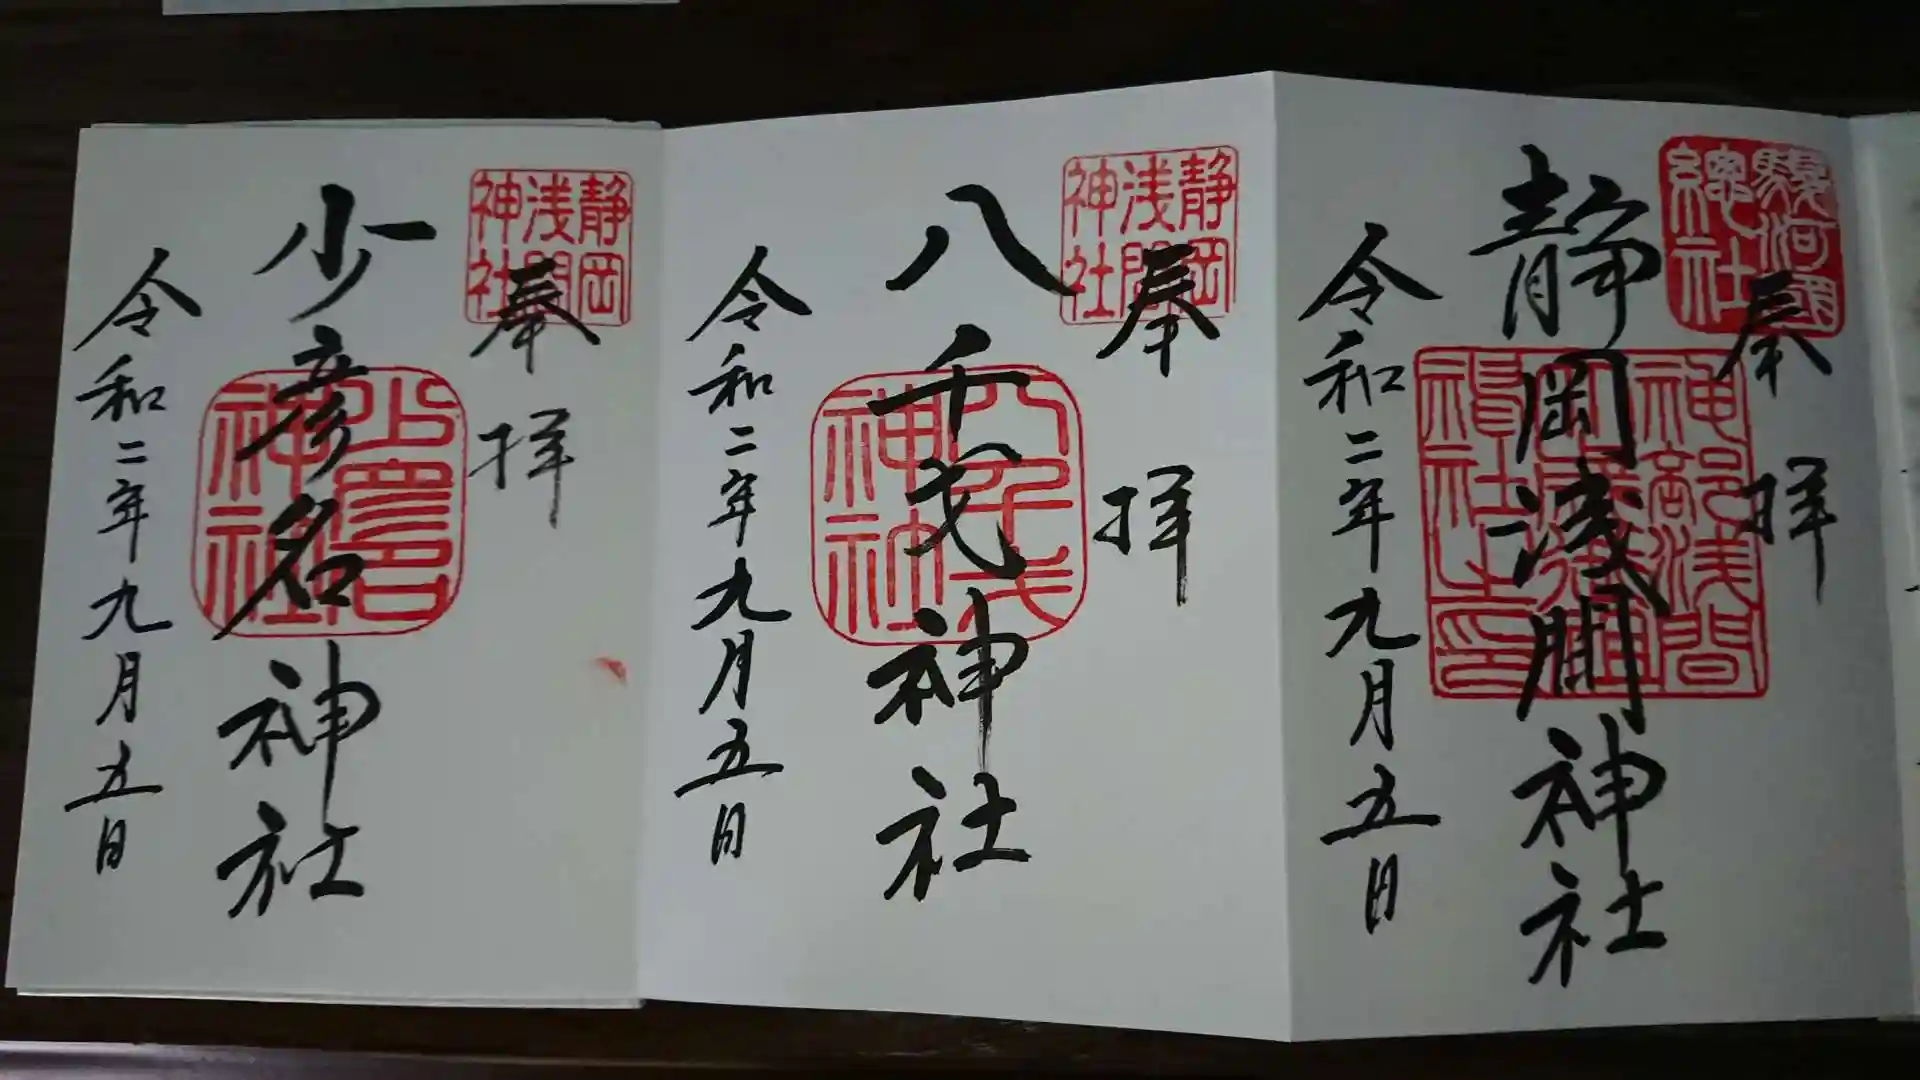 奉拝
駿河國
總社
静岡浅間神社
神部浅間
令和二年九月五日
奉拝
静岡
浅間
神社
八千戈神社
八千戈
神社
令和二年九月五日
奉拝
静岡
浅間
神社
少彦名神社
少彦名
神社
令和二年九月五日